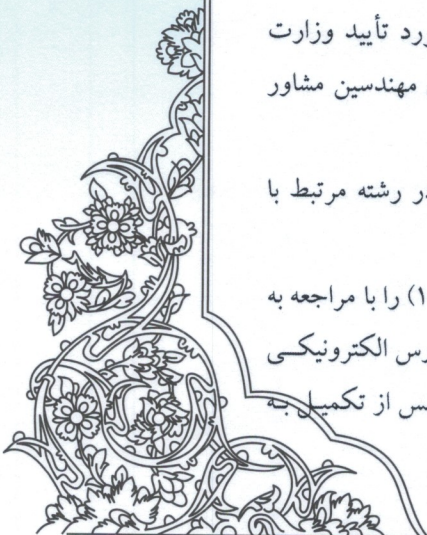 ورد تأیید وزارت
مهندسین مشاور
در رشته مرتبط با
۱) را با مراجعه به
رس الکترونیکی
س از تکمیل به